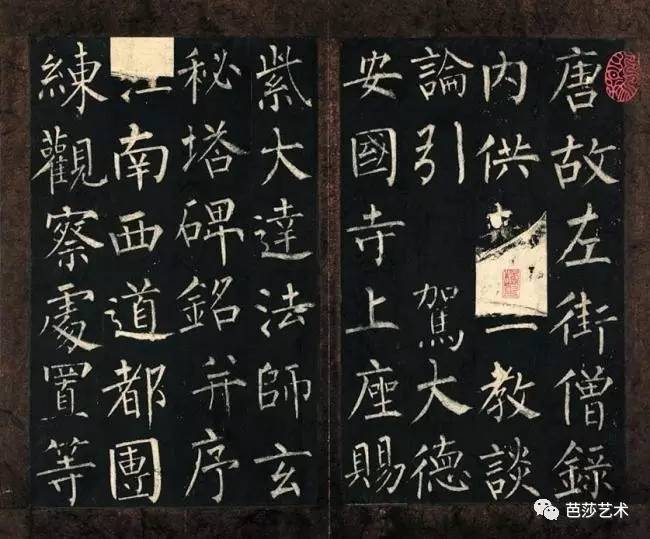 唐故左街僧錄
內供教談
論引駕大德
安國寺上座賜
紫大達法師玄
秘塔碑銘并序
南西道都團
練觀察處置等
芭莎艺术